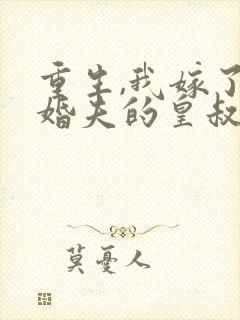 重生,我嫁了
婚夫的皇叔
莫憂人